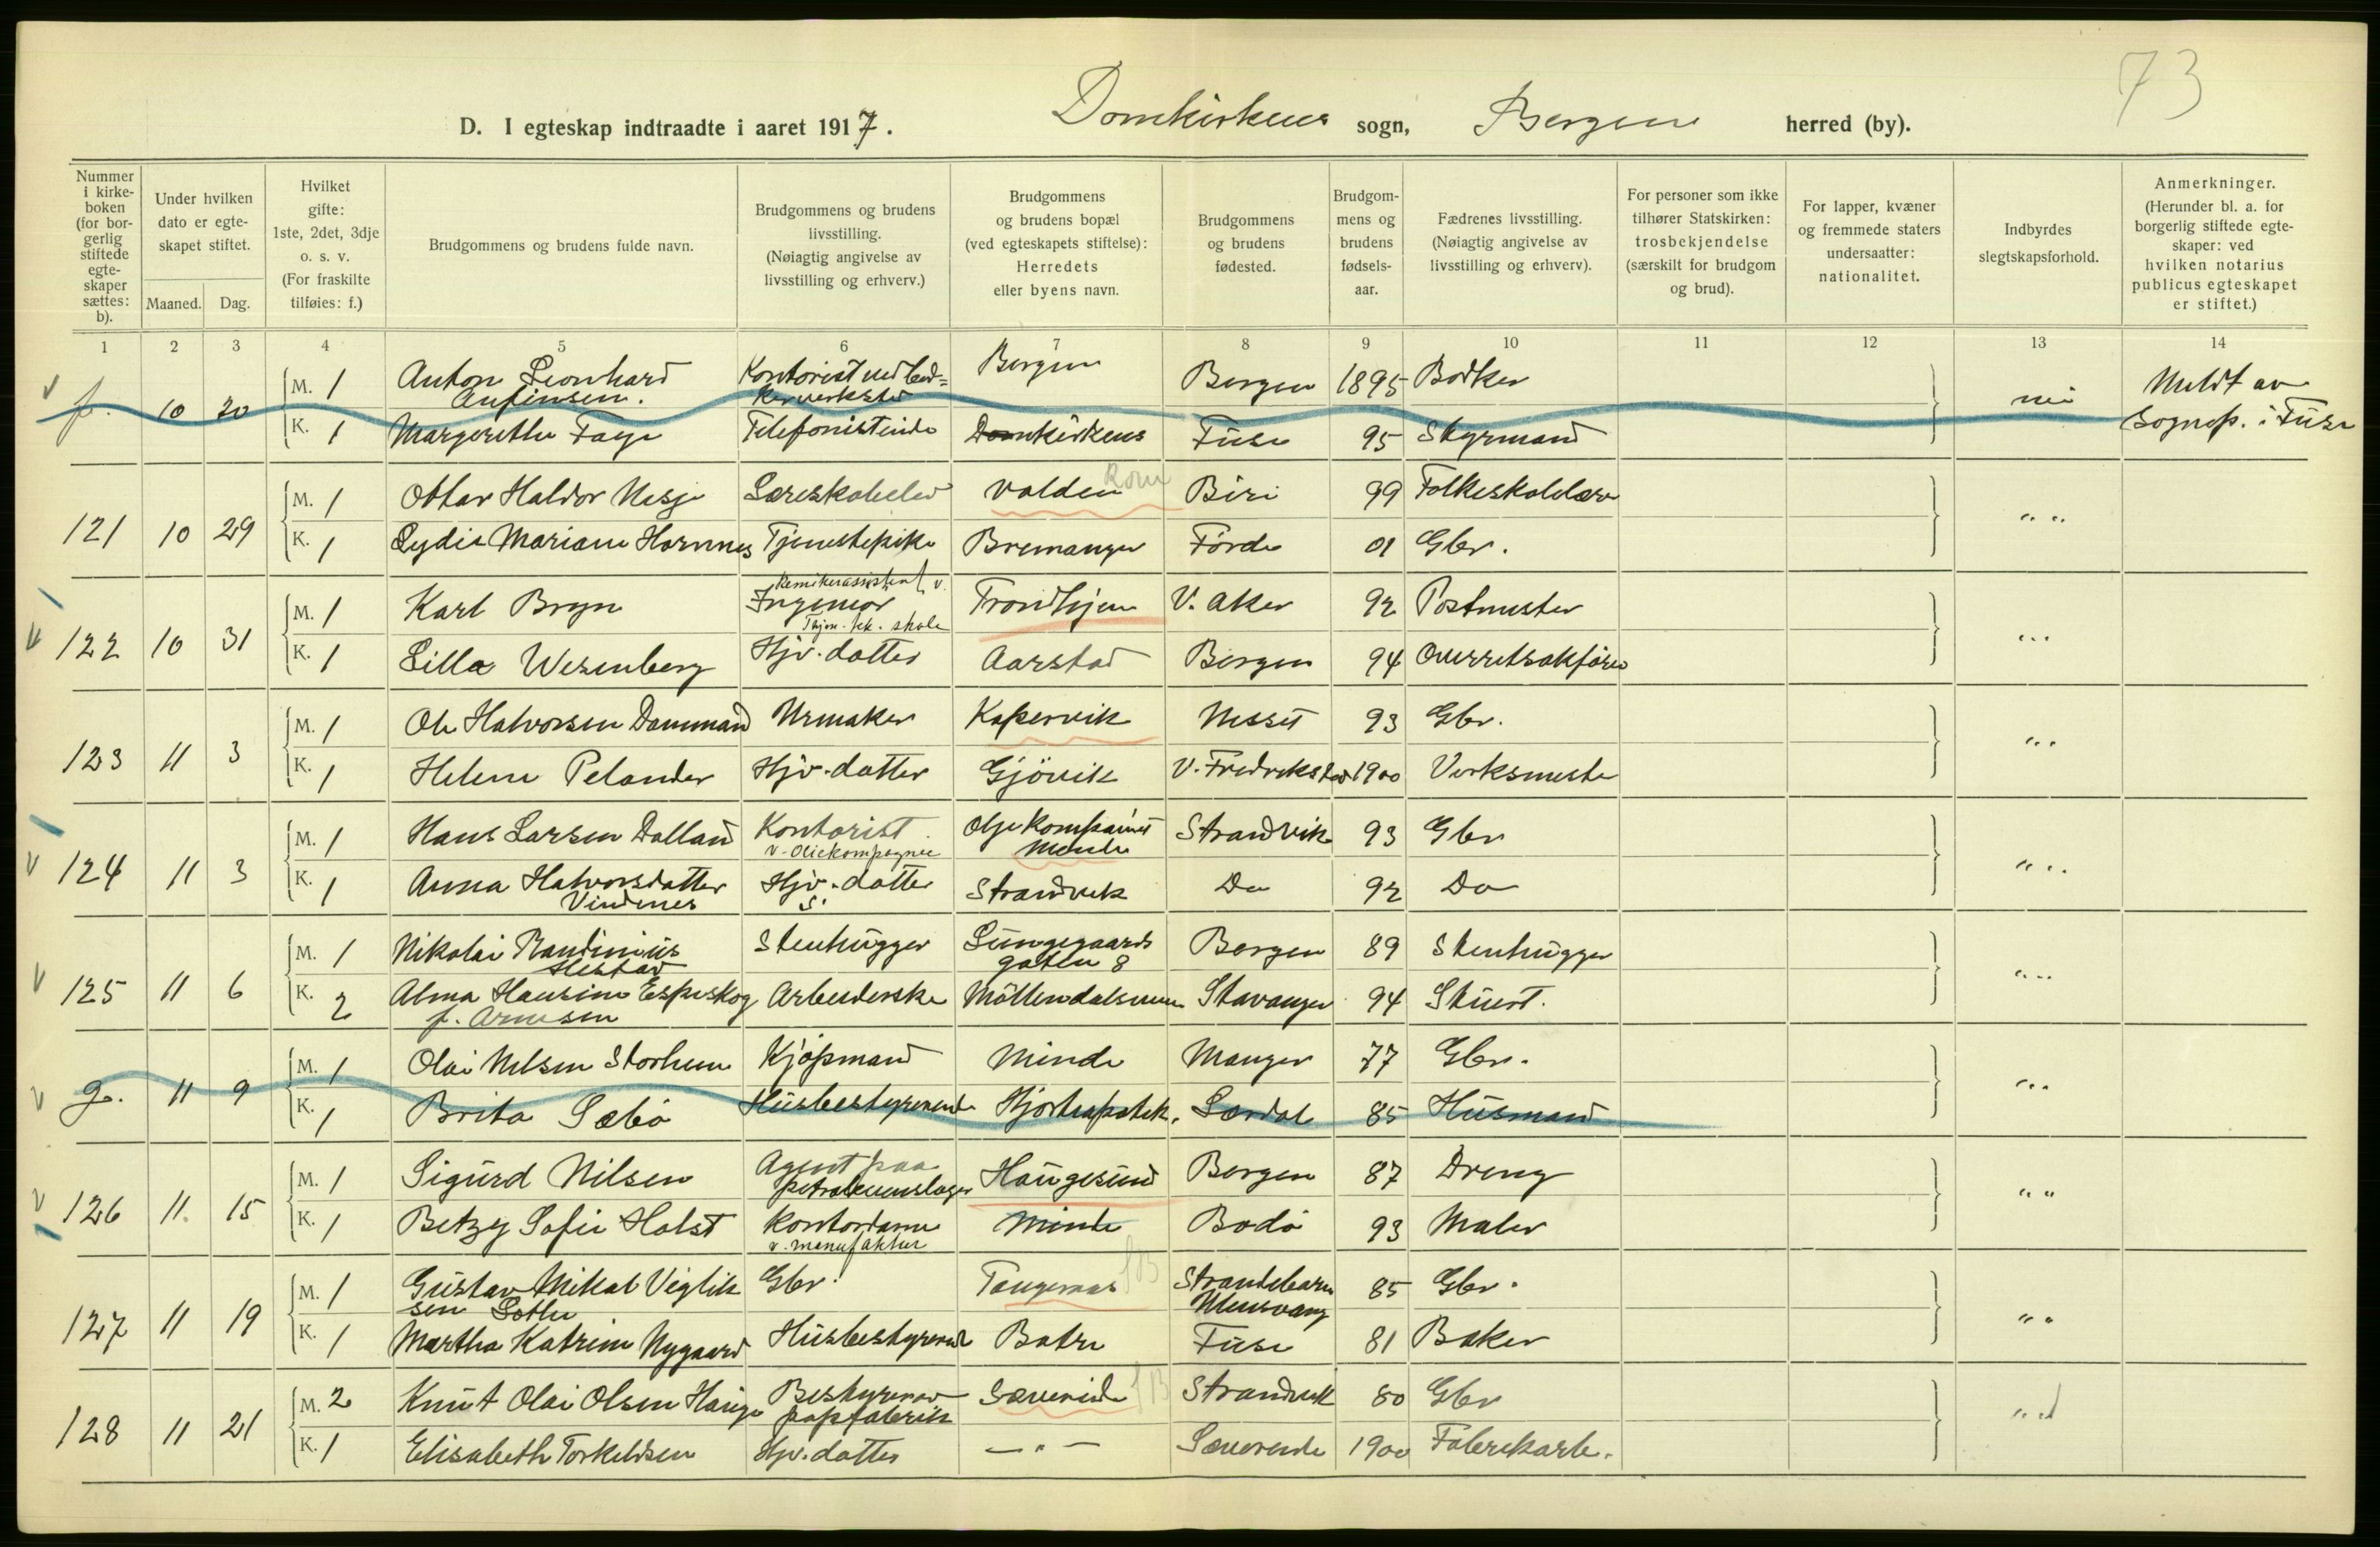 73
D. I egteskap indtraadte i aaret 1917. Domkirkens sogn, Bergens herred (by).
Nummer i kirke-boken (for bor-gerlig stiftede egte-skaper sættes: b).
Under hvilken dato er egte-skapet stiftet.
Maaned. Dag.
Hvilket gifte: 1ste, 2det, 3dje o. s. v. (For fraskilte tilføies: f.)
Brudgommens og brudens fulde navn.
Brudgommens og brudens livsstilling. (Nøiagtig angivelse av livsstilling og erhverv.)
Brudgommens og brudens bopæl (ved egteskapets stiftelse): Herredets eller byens navn.
Brudgommens og brudens fødested.
Brudgom-mens og brudens fødsels-aar.
Fædrenes livsstilling. (Nøiagtig angivelse av livsstilling og erhverv).
For personer som ikke tilhører Statskirken: trosbekjendelse (særskilt for brudgom og brud).
For lapper, kvæner og fremmede staters undersaatter: nationalitet.
Indbyrdes slegtskapsforhold.
Anmerkninger. (Herunder bl. a. for borgerlig stiftede egte-skaper: ved hvilken notarius publicus egteskapet er stiftet.)
1 2 3 4 5 6 7 8 9 10 11 12 13 14
f. 10 20 M. 1 Anton Leonhard Anfinsen. Kontorist ved Bergen Bergen 1895 Bødker nei Meldt av
K. 1 Margrethe Faye Telefonistinde Domkirkens Fuse 95 Styrmand Sognep. i Fuse
121 10 29 M. 1 Ottar Haldor Nesje Læreskoleelev Volden Biri 99 Folkeskolelærer " "
K. 1 Lydia Mariane Hornnes Tjenestepike Bremanger Førde 01 Gbr.
122 10 31 M. 1 Karl Bryn Kemikerassistent v. Ingeniør Thjem. tek. skole Trondhjem V. Aker 92 Postmester " "
K. 1 Lilla Wesenberg Hjv. datter Aarstad Bergen 94 Overretsakfører
123 11 3 M. 1 Ole Halvorsen Dammand Urmaker Kopervik Nesset 93 Gbr. " "
K. 1 Helene Pelander Hjv. datter Gjövik V. Fredrikstad 1900 Verksmester
124 11 3 M. 1 Hans Larsen Dalland Kontorist v. Oliekompagnie Oljekompaniet Minde Strandvik 93 Gbr " "
K. 1 Anna Halvorsdatter Vindenes Hjv. datter S. Strandvik Do 92 Do
125 11 6 M. 1 Nikolai Randinius Hestad Stenhugger Lungegaards gaten 8 Bergen 89 Stenhugger " "
K. 2 Alma Hansine Espeskog f. Arnesen Arbeiderske Möllendalsveien Stavanger 94 Stuert.
g. 11 9 M. 1 Olai Nilsen Storheim Kjöpmand Minde Manger 77 Gbr. " "
K. 1 Brita Sæbö Husbestyrerinde Hjorteapotek. Lærdal 85 Husmand
126 11 15 M. 1 Sigurd Nilsen Agent paa petroleumslager Haugesund Bergen 87 Dreng " "
K. 1 Betzy Sofie Holst Kontordame v. manufaktur Minde Bodö 93 Maler
127 11 19 M. 1 Gustav Mikal Viglik sen Lothe Gbr. Tangeraas Strandebarm Ullensvang 85 Gbr. " "
K. 1 Martha Katrine Nygaard Husbestyrerinde Batre Fuse 81 Baker
128 11 21 M. 2 Knut Olai Olsen Hauge Bestyrer av papfabrik Sævareide Strandvik 80 Gbr " "
K. 1 Elisabeth Torkeldsen Hjv. datter — " — Sævareide 1900 Fabrikarb.